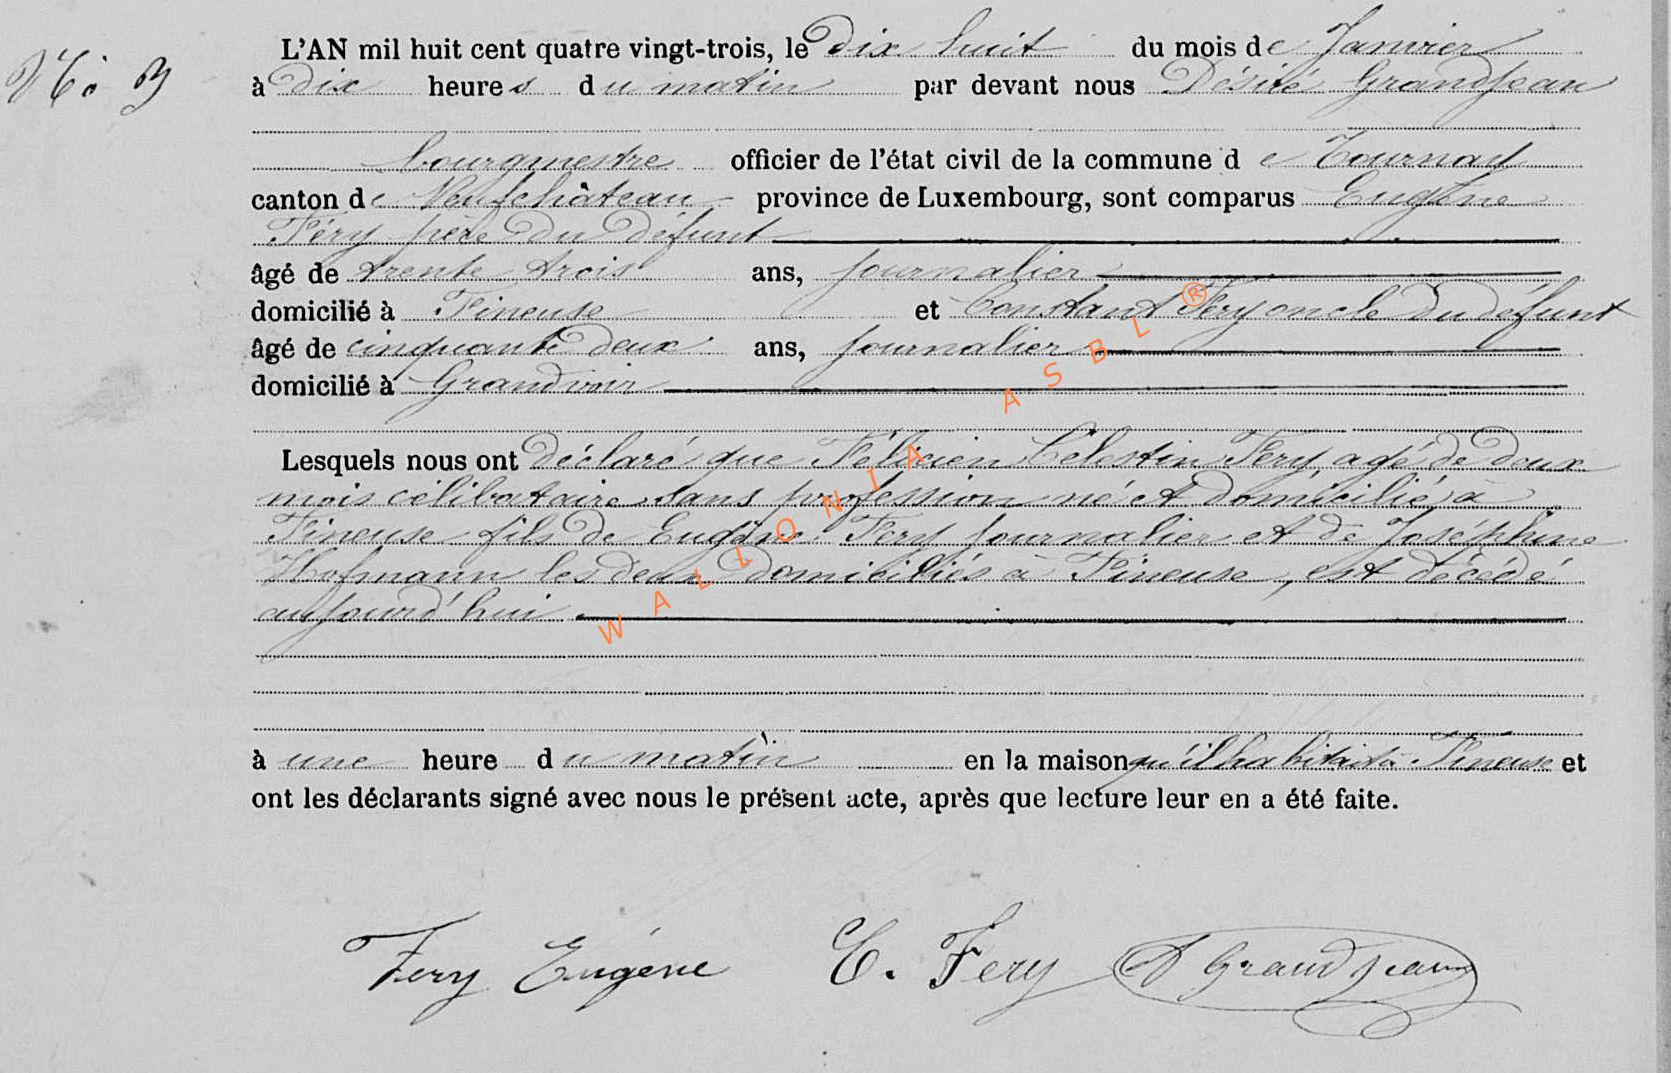 No 3
L'AN mil huit cent quatre vingt-trois, le dix huit du mois de Janvier
à dix heures du matin par devant nous Désiré Grandjean
bourgmestre officier de l'état civil de la commune de Tournay
canton de Neufchâteau province de Luxembourg, sont comparus Eugène
Féry père du défunt
âgé de trente trois ans, journalier
domicilié à Tineuse et Constant Féry oncle du défunt
âgé de cinquante deux ans, journalier
domicilié à Grandvoir
Lesquels nous ont déclaré que Félicien Célestin Féry, agé de deux
mois célibataire sans profession né et domicilié à
Tineuse fils de Eugène Fery journalier et de Joséphine
Hofmann les deux domiciliés à Tineuse, est décédé
aujourd'hui
à une heure du matin en la maison qu'il habitait à Tineuse et
ont les déclarants signé avec nous le présent acte, après que lecture leur en a été faite.
Fery Eugène C. Fery D Grandjean
WALLONIA ASBL ®